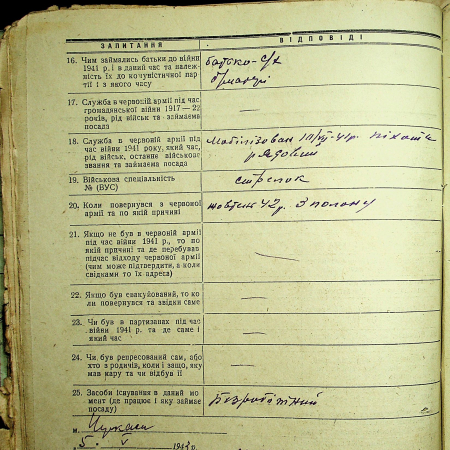 ЗАПИТАННЯ
ВІДПОВІДІ
16. Чим займались батьки до війни
1941 р. і в даний час та належ-
ність їх до комуністичної пар-
тії і з якого часу
батько - с/х
17. Служба в червоній армії під час
громадянської війни 1917—22
років, рід військ та займаєма
посада
—
18. Служба в червоній армії під
час війни 1941 року, який час,
рід військ, останнє військове
звання та займаєма посада
Мобілізован 10/VII-41р. піхота
рядовий
19. Військова спеціальність
№ (ВУС)
стрелок
20. Коли повернувся з червоної
армії та по якій причині
жовтень 42 р. З полону
21. Якщо не був в червоній армії
під час війни 1941 р., то по
якій причині та де перебував
підчас відходу червоної армії
(чим може підтвердити, а коли
свідками то їх адреса)
—
22. Якщо був евакуйований, то ко-
ли повернувся та звідки саме
—
23. Чи був в партизанах під час
війни 1941 р. та де саме і
який час
—
24. Чи був репресований сам, або
хто з родичів, коли і защо, яку
мав кару та чи відбув її
—
25. Засоби існування в даний мо-
мент (де працює і яку займає
посаду)
Безробітний
м. Черкаси
5. V 194